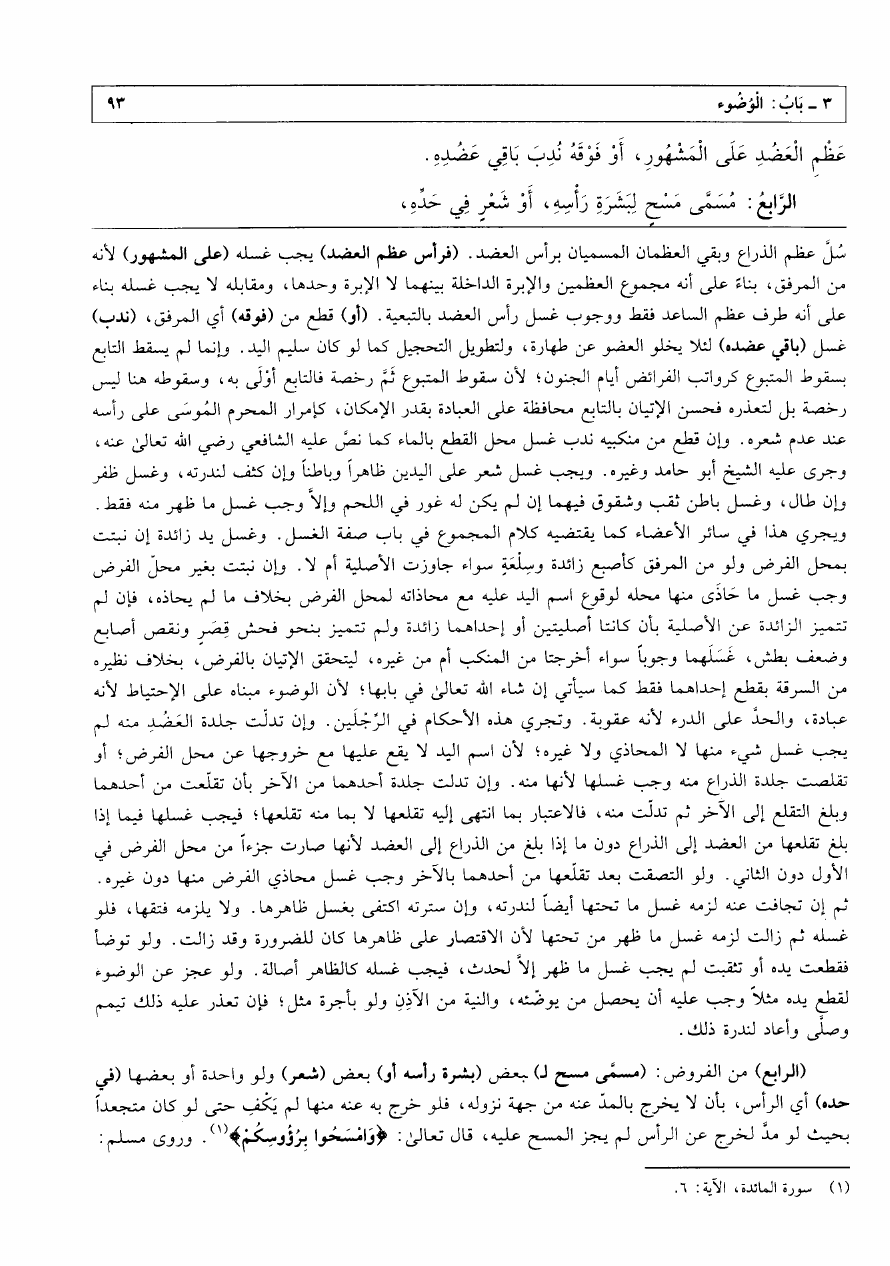 ٣ ـ بَابُ: الْوُضُوء ٩٣
عَظْمِ الْعَضُدِ عَلَى الْمَشْهُورِ، أَوْ فَوْقَهُ نُدِبَ بَاقِي عَضُدِهِ.
الرَّابِعُ: مُسَمَّى مَسْحٍ لِبَشَرَةِ رَأْسِهِ، أَوْ شَعْرٍ فِي حَدِّهِ،
سُلَّ عظم الذراع وبقي العظمان المسميان برأس العضد. (فرأس عظم العضد) يجب غسله (على المشهور) لأنه
من المرفق، بناءً على أنه مجموع العظمين والإبرة الداخلة بينهما لا الإبرة وحدها، ومقابله لا يجب غسله بناء
على أنه طرف عظم الساعد فقط ووجوب غسل رأس العضد بالتبعية. (أو) قطع من (فوقه) أي المرفق، (ندب)
غسل (باقي عضده) لئلا يخلو العضو عن طهارة، ولتطويل التحجيل كما لو كان سليم اليد. وإنما لم يسقط التابع
بسقوط المتبوع كرواتب الفرائض أيام الجنون؛ لأن سقوط المتبوع ثَمَّ رخصة فالتابع أَوْلَى به، وسقوطه هنا ليس
رخصة بل لتعذره فحسن الإتيان بالتابع محافظة على العبادة بقدر الإمكان، كإمرار المحرم المُوسَى على رأسه
عند عدم شعره. وإن قطع من منكبيه ندب غسل محل القطع بالماء كما نصَّ عليه الشافعي رضي الله تعالىٰ عنه،
وجرى عليه الشيخ أبو حامد وغيره. ويجب غسل شعر على اليدين ظاهراً وباطناً وإن كثف لندرته، وغسل ظفر
وإن طال، وغسل باطن ثقب وشقوق فيهما إن لم يكن له غور في اللحم وإلاَّ وجب غسل ما ظهر منه فقط.
ويجري هذا في سائر الأعضاء كما يقتضيه كلام المجموع في باب صفة الغسل. وغسل يد زائدة إن نبتت
بمحل الفرض ولو من المرفق كأصبع زائدة وسِلْعَةٍ سواء جاوزت الأصلية أم لا. وإن نبتت بغير محلّ الفرض
وجب غسل ما حَاذَى منها محله لوقوع اسم اليد عليه مع محاذاته لمحل الفرض بخلاف ما لم يحاذه، فإن لم
تتميز الزائدة عن الأصلية بأن كانتا أصليتين أو إحداهما زائدة ولم تتميز بنحو فحش قِصَرٍ ونقص أصابع
وضعف بطش، غَسَلَهما وجوباً سواء أخرجتا من المنكب أم من غيره، ليتحقق الإتيان بالفرض، بخلاف نظيره
من السرقة بقطع إحداهما فقط كما سيأتي إن شاء الله تعالىٰ في بابها؛ لأن الوضوء مبناه على الإحتياط لأنه
عبادة، والحدَّ على الدرء لأنه عقوبة. وتجري هذه الأحكام في الرِّجْلَين. وإن تدلّت جلدة العَضُدِ منه لم
يجب غسل شيء منها لا المحاذي ولا غيره؛ لأن اسم اليد لا يقع عليها مع خروجها عن محل الفرض؛ أو
تقلصت جلدة الذراع منه وجب غسلها لأنها منه. وإن تدلت جلدة أحدهما من الآخر بأن تقلّعت من أحدهما
وبلغ التقلع إلى الآخر ثم تدلّت منه، فالاعتبار بما انتهى إليه تقلعها لا بما منه تقلعها؛ فيجب غسلها فيما إذا
بلغ تقلعها من العضد إلى الذراع دون ما إذا بلغ من الذراع إلى العضد لأنها صارت جزءاً من محل الفرض في
الأول دون الثاني. ولو التصقت بعد تقلّعها من أحدهما بالآخر وجب غسل محاذي الفرض منها دون غيره.
ثم إن تجافت عنه لزمه غسل ما تحتها أيضاً لندرته، وإن سترته اكتفى بغسل ظاهرها. ولا يلزمه فتقها، فلو
غسله ثم زالت لزمه غسل ما ظهر من تحتها لأن الاقتصار على ظاهرها كان للضرورة وقد زالت. ولو توضأ
فقطعت يده أو تثقبت لم يجب غسل ما ظهر إلاَّ لحدث، فيجب غسله كالظاهر أصالة. ولو عجز عن الوضوء
لقطع يده مثلاً وجب عليه أن يحصل من يوضّئه، والنية من الآذِنِ ولو بأجرة مثل؛ فإن تعذر عليه ذلك تيمم
وصلَّى وأعاد لندرة ذلك.
(الرابع) من الفروض: (مسمَّى مسح لـ) ـبعض (بشرة رأسه أو) بعض (شعر) ولو واحدة أو بعضها (في
حده) أي الرأس، بأن لا يخرج بالمدّ عنه من جهة نزوله، فلو خرج به عنه منها لم يَكْفِ حتى لو كان متجعداً
بحيث لو مدَّ لخرج عن الرأس لم يجز المسح عليه، قال تعالىٰ: ﴿وَامْسَحُوا بِرُؤُوسِكُمْ﴾(١). وروى مسلم:
(١) سورة المائدة، الآية: ٦.